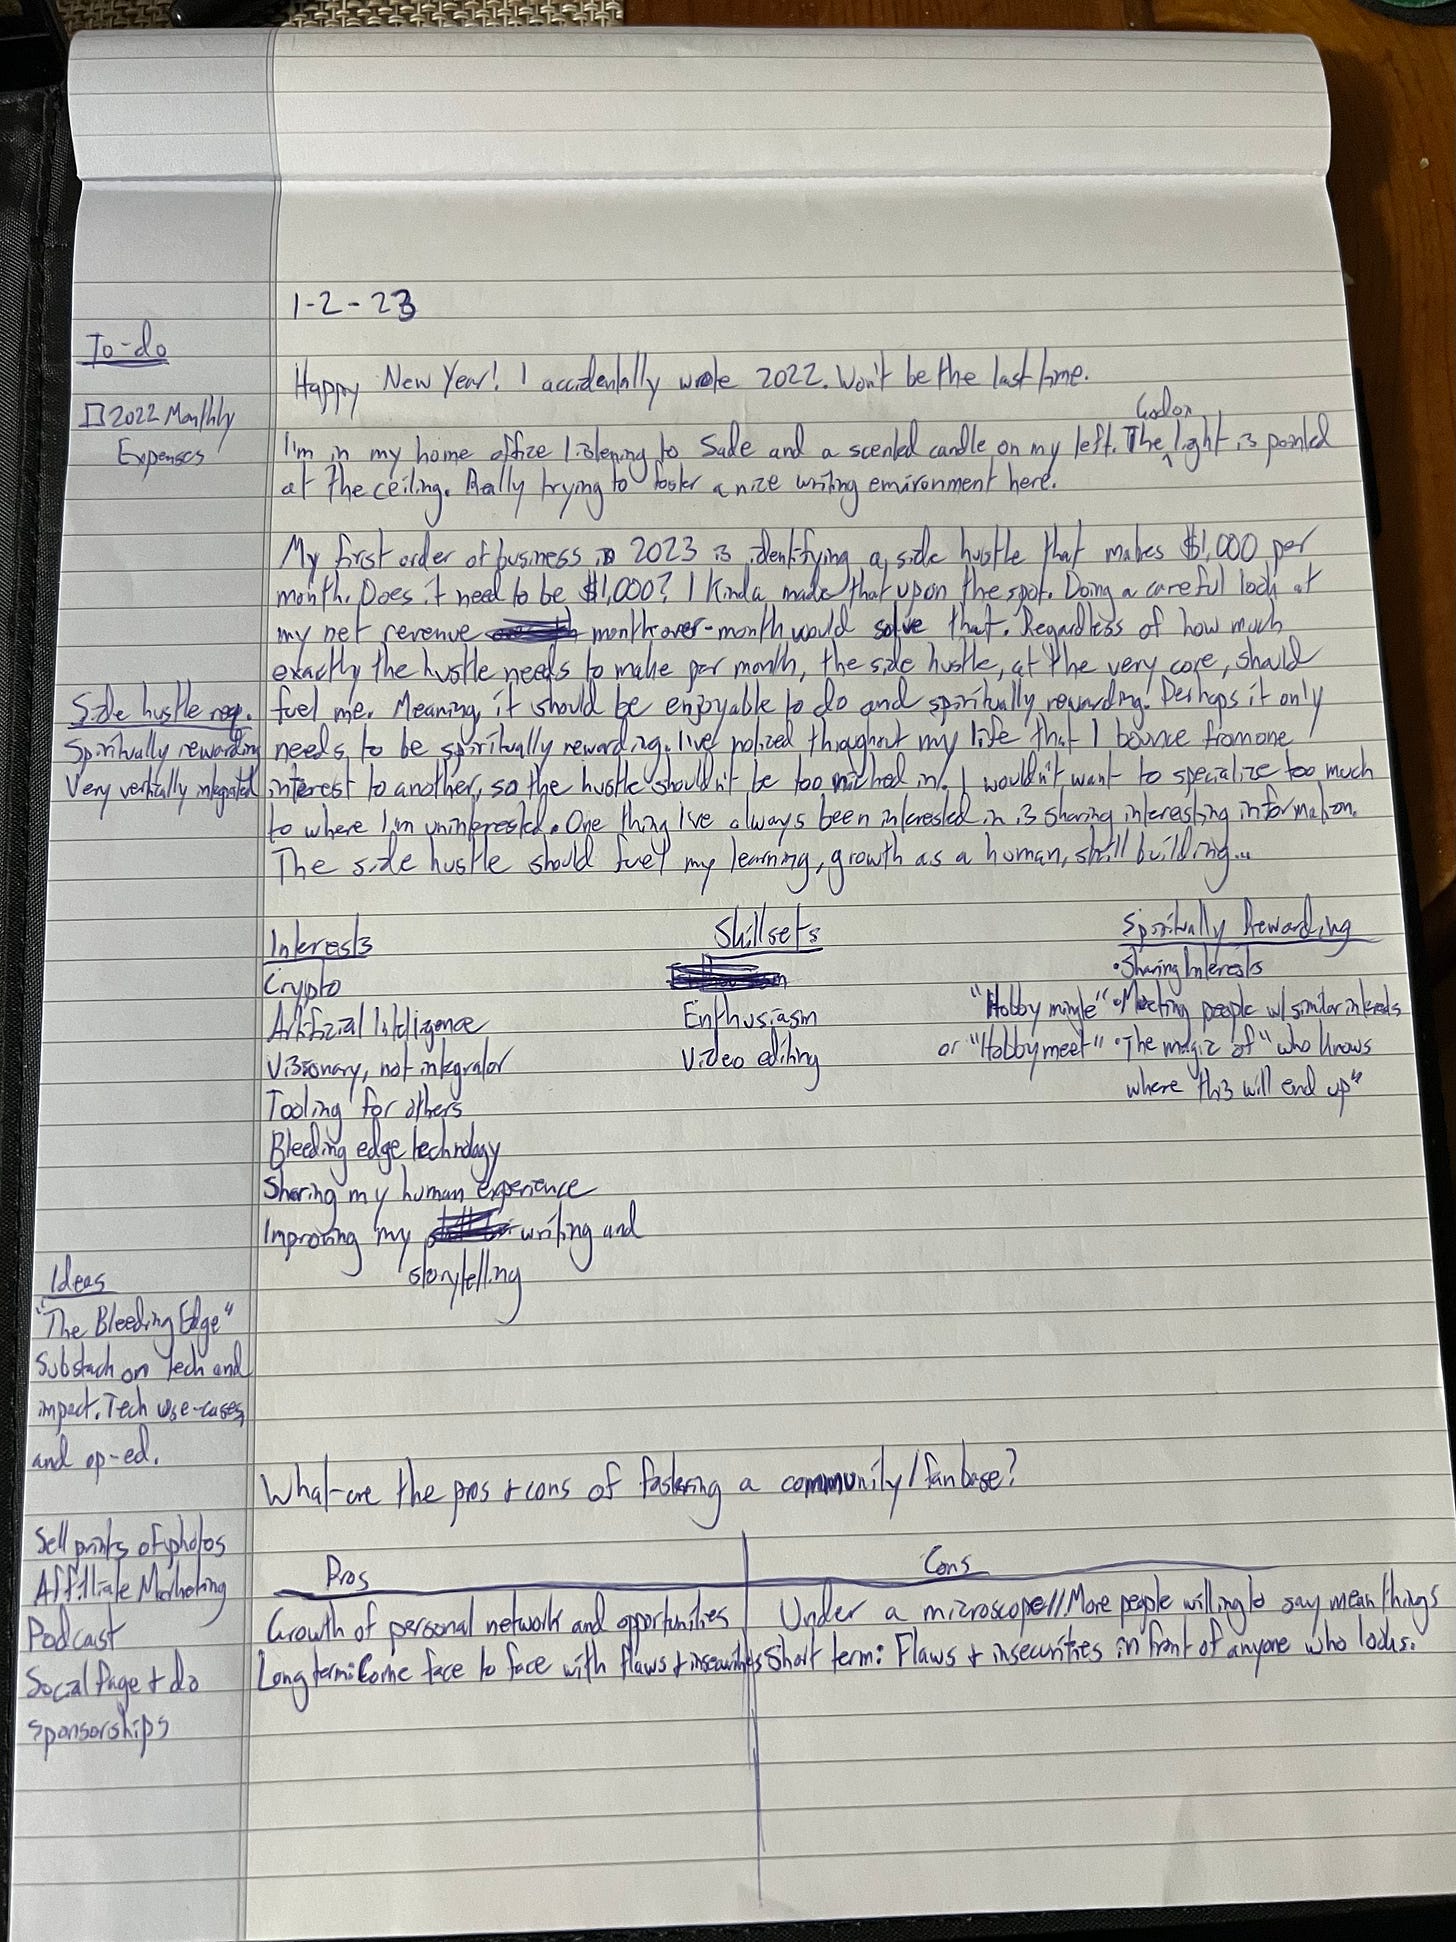 1-2-23
To-do
Happy New Year! I accidentally wrote 2022. Won't be the last time.
☐ 2022 Monthly
Expenses
Godox
I'm in my home office listening to Sade and a scented candle on my left. The light is pointed
at the ceiling. Really trying to foster a nice writing environment here.
My first order of business in 2023 is identifying a side hustle that makes $1,000 per
month. Does it need to be $1,000? I kinda made that up on the spot. Doing a careful look at
my net revenue month-over-month would solve that. Regardless of how much
exactly the hustle needs to make per month, the side hustle, at the very core, should
fuel me. Meaning, it should be enjoyable to do and spiritually rewarding. Perhaps it only
needs to be spiritually rewarding. I've noticed throughout my life that I bounce from one
interest to another, so the hustle shouldn't be too niched in. I wouldn't want to specialize too much
to where I'm uninterested. One thing I've always been interested in is sharing interesting information.
The side hustle should fuel my learning, growth as a human, skill building...
Side hustle req.
Spiritually rewarding
Very vertically integrated
Interests
Crypto
Artificial Intelligence
Visionary, not integrator
Tooling for others
Bleeding edge technology
Sharing my human experience
Improving my writing and
storytelling
Skillsets
Enthusiasm
Video editing
Spiritually Rewarding
• Sharing Interests
"Hobby mingle" • Meeting people w/ similar interests
or "Hobby meet" • The magic of "who knows
where this will end up"
Ideas
"The Bleeding Edge"
Substack on Tech and
impact. Tech use-cases,
and op-ed.
Sell prints of photos
Affiliate Marketing
Podcast
Social Page + do
sponsorships
What are the pros + cons of fostering a community/fan base?
Pros
Growth of personal network and opportunities
Long term: Come face to face with flaws + insecurities
Cons
Under a microscope // More people willing to say mean things
Short term: Flaws + insecurities in front of anyone who looks.